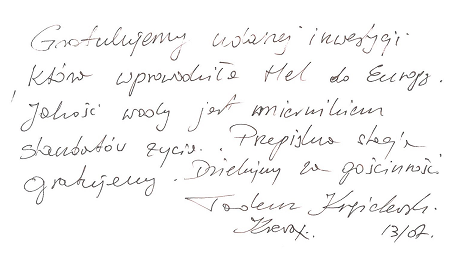 Gratulujemy udanej inwestycji
która wprowadziła Hel do Europy.
Jakość wody jest miernikiem
standartów życia. Przepiękna stacja
gratujemy. Dziękujemy za gościnność
Tadeusz
13/07.